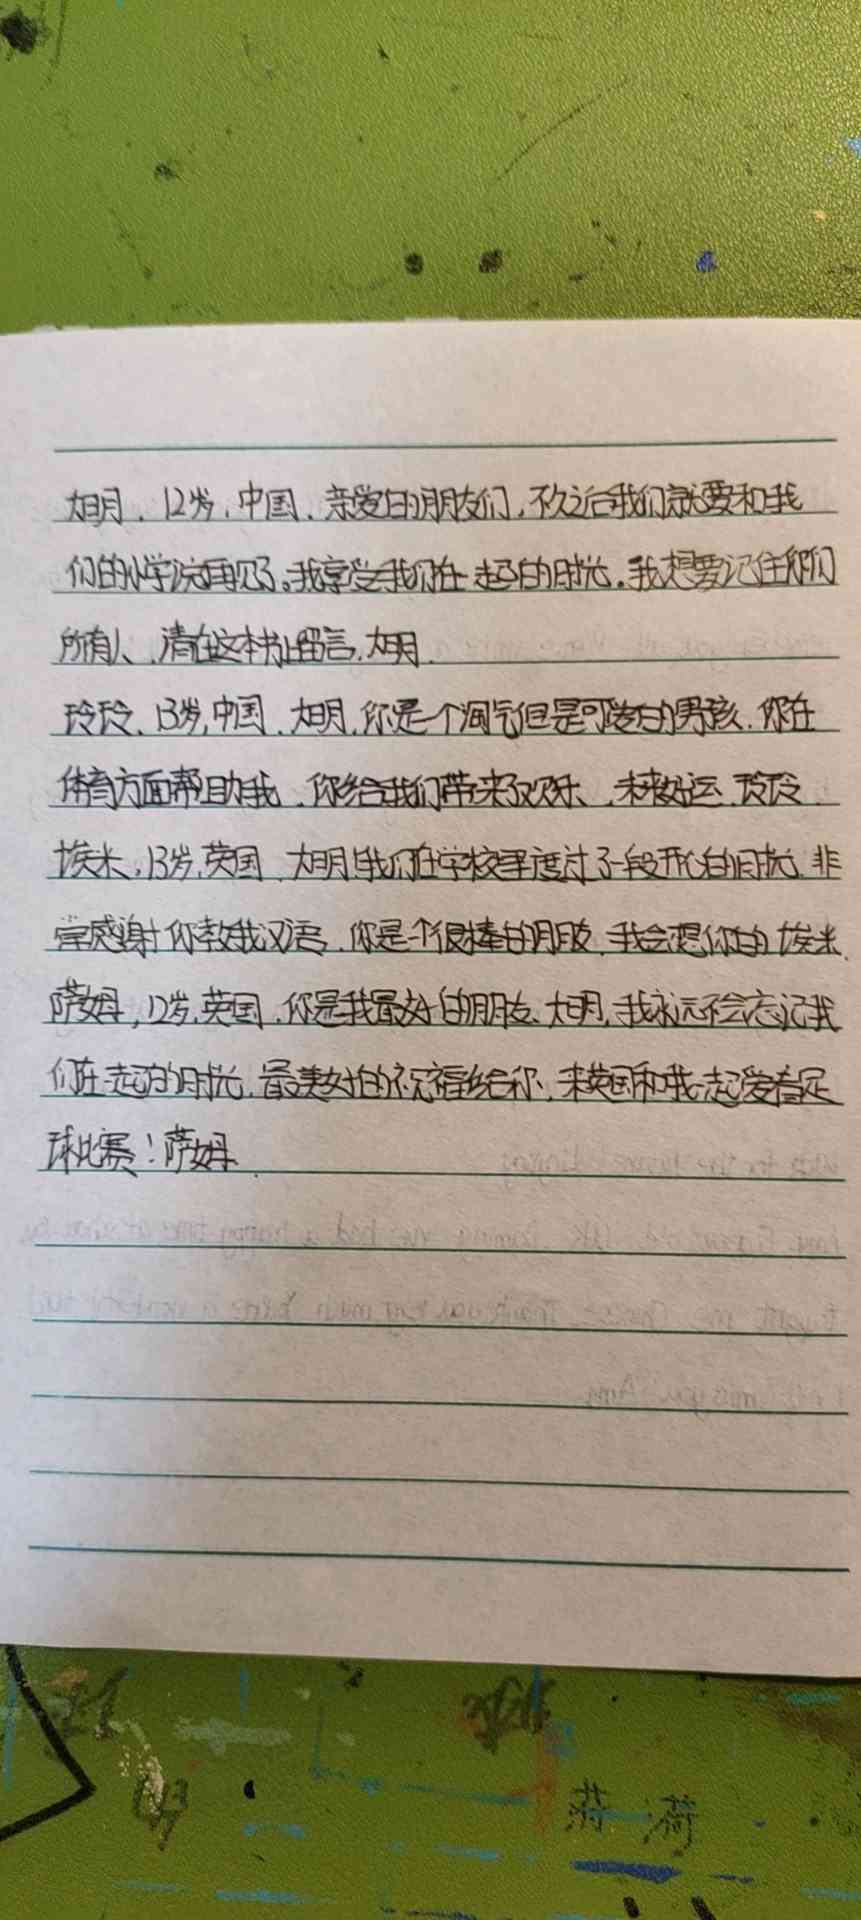 大明、12岁，中国、亲爱的朋友们，不久之后我们就要和我
们的小学说再见了。我享受我们在一起的时光。我想要记住你们
所有人、请在这本书上留言，大明、
玲玲、13岁，中国、大明，你是一个淘气但是可爱的男孩、你在
体育方面帮助我、你给我们带来了欢乐、未来好运、玲玲、
埃米，13岁，英国、大明！我们在学校里度过了一段开心的时光、非
常感谢你教我汉语、你是个很棒的朋友、我会想你的、埃米、
萨姆，12岁，英国、你是我最好的朋友、大明，我永远不会忘记我
们在一起的时光、最美好的祝福给你、来英国和我一起爱看足
球比赛！萨姆、
蒋 荷